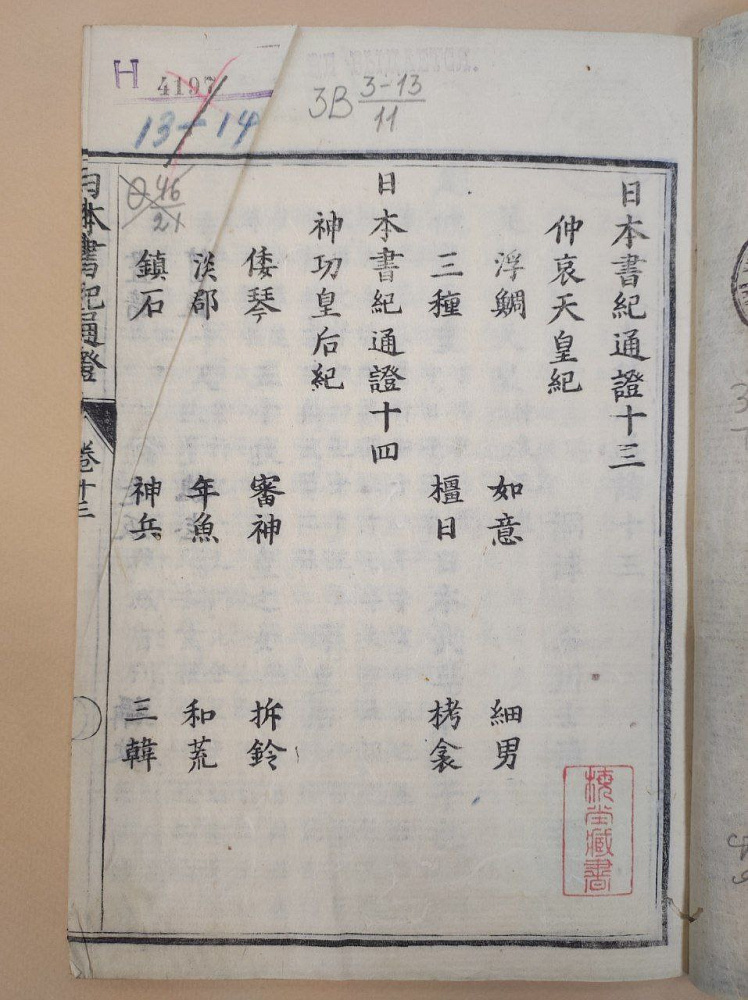 H 4197
13-14
3B 3-13/11
46/21
日本書紀通證十三
仲哀天皇紀
浮鯛 如意 細男
三種 橿日 栲衾
日本書紀通證十四
神功皇后紀
倭琴 審神 拆鈴
淡郡 年魚 和荒
鎮石 神兵 三韓
日本書紀通證 卷十三
藏書